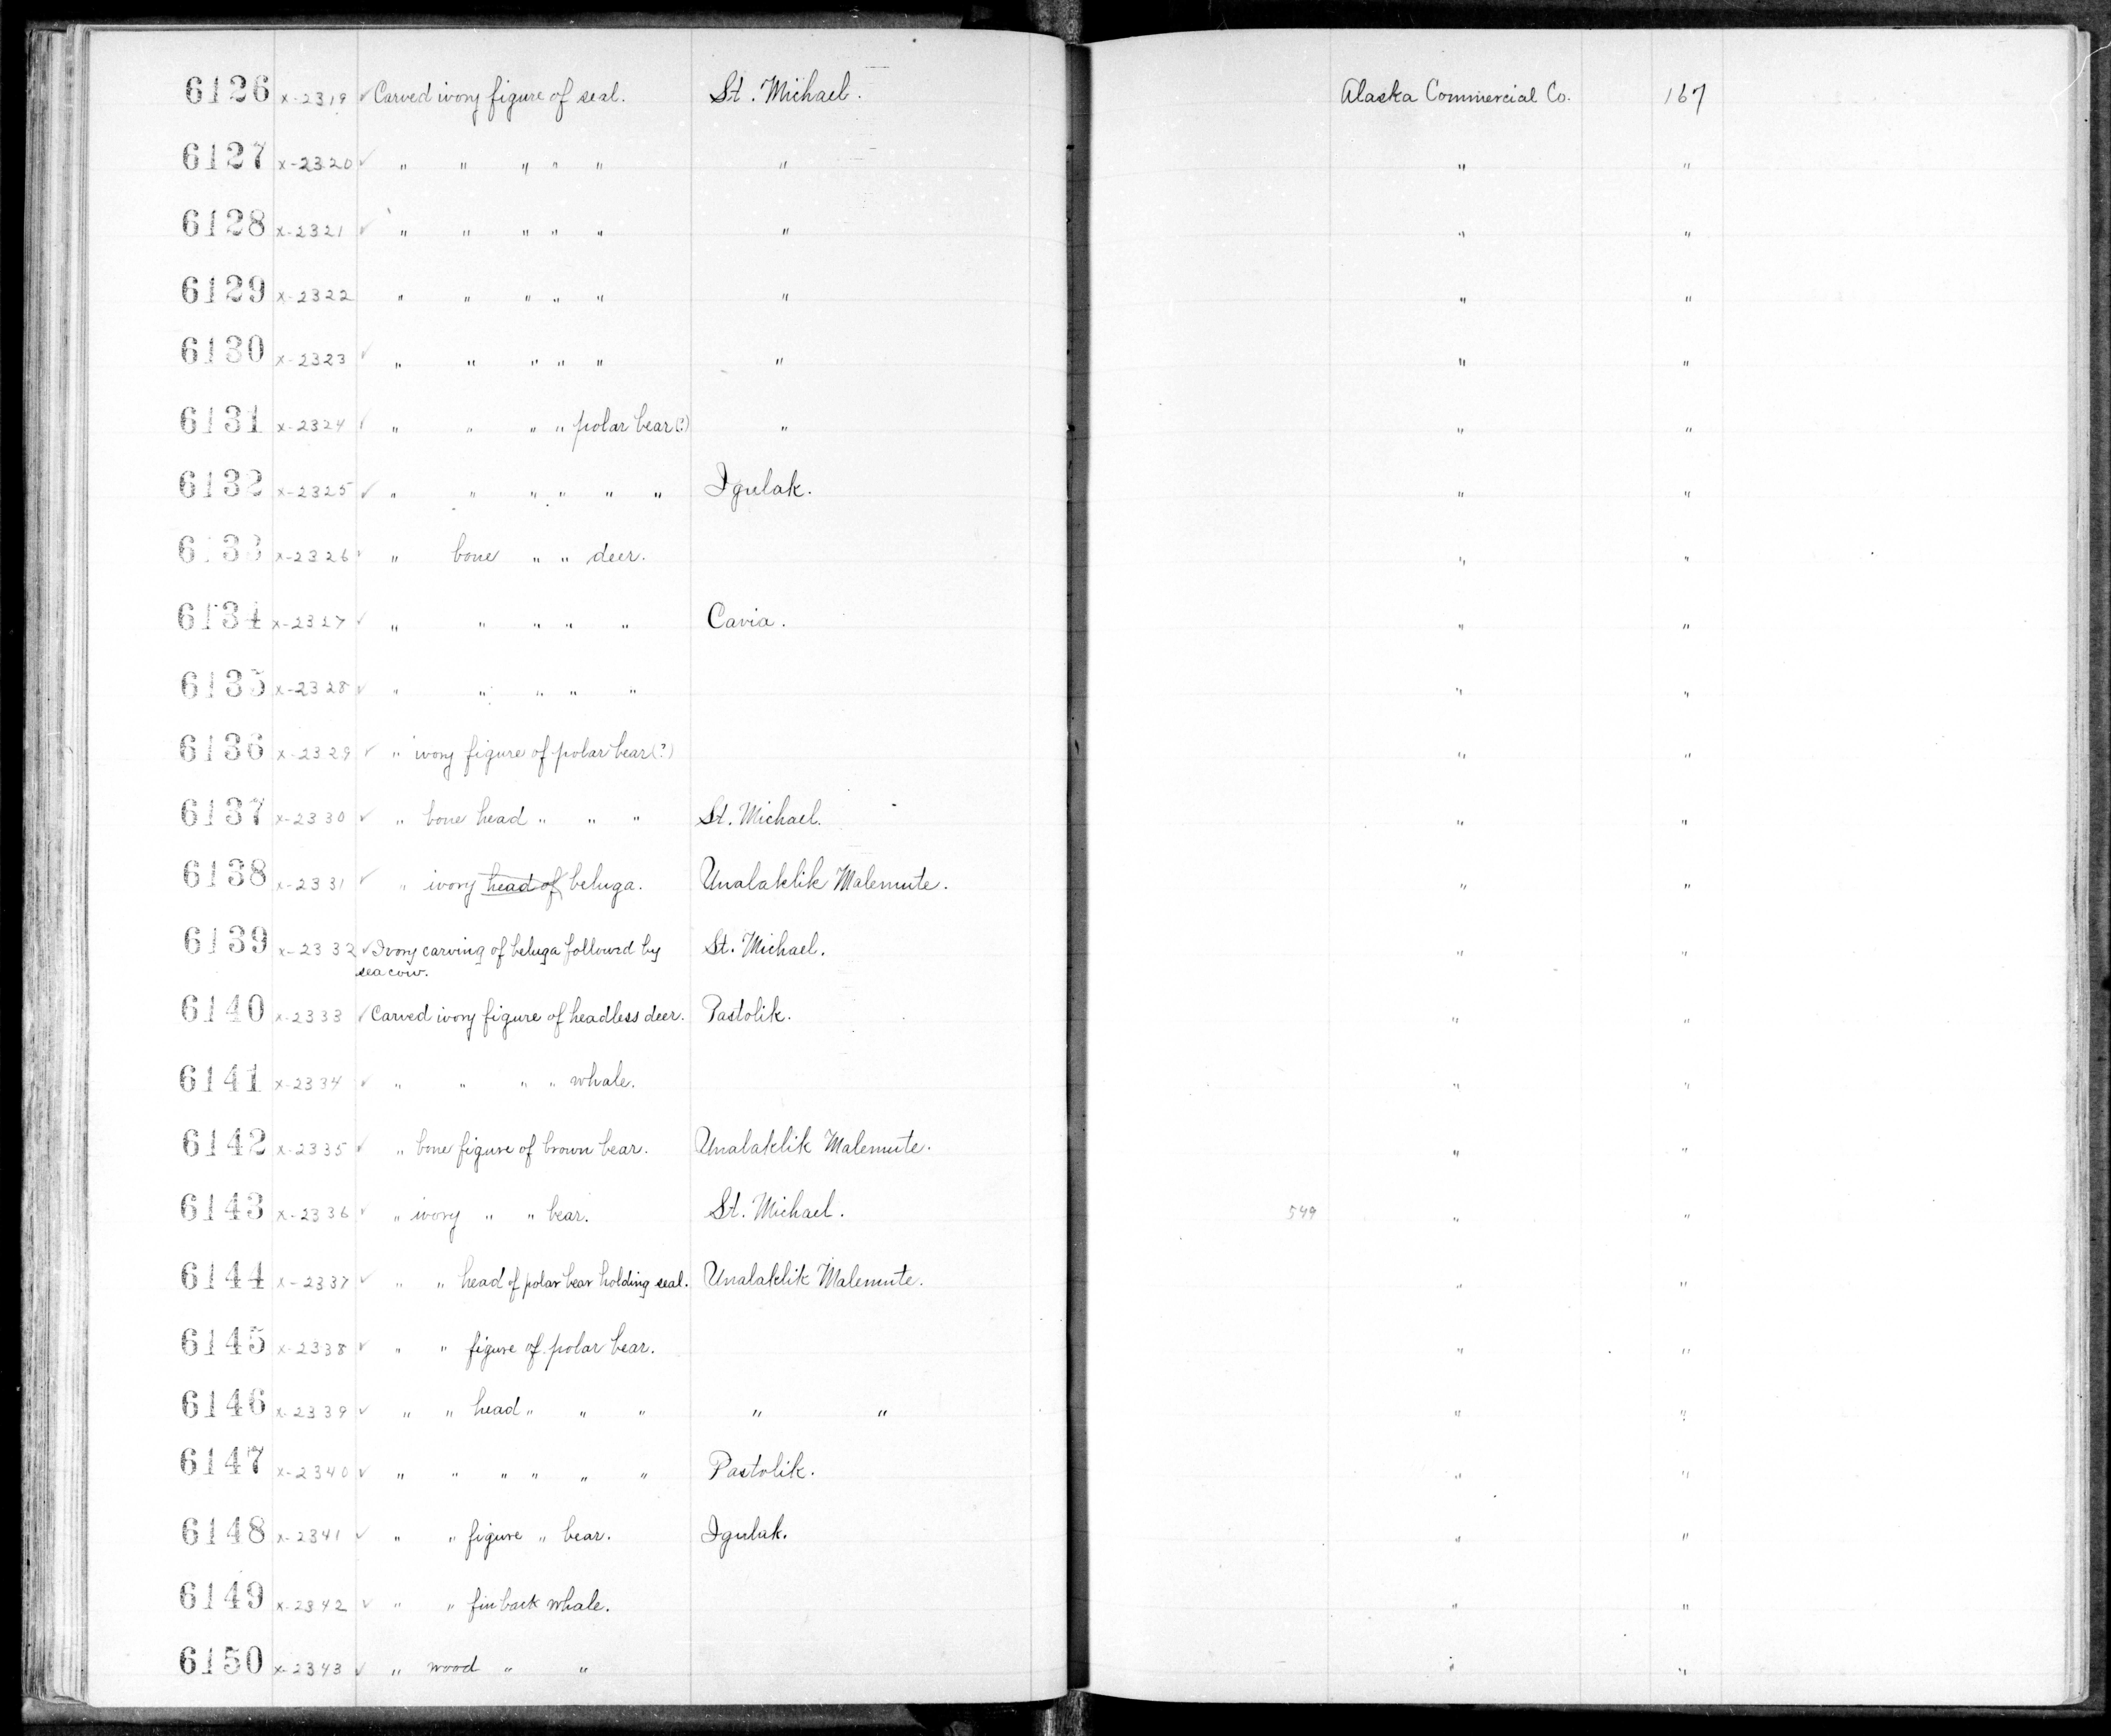 6126 x-2319 ✓ Carved ivory figure of seal. St. Michael. Alaska Commercial Co. 167
6127 x-2320 ✓ " " " " " " " "
6128 x-2321 ✓ " " " " " " " "
6129 x-2322 " " " " " " " "
6130 x-2323 ✓ " " " " " " " "
6131 x-2324 ✓ " " " " polar bear (?) " " "
6132 x-2325 ✓ " " " " " " Igulak. " "
6133 x-2326 ✓ " bone " " deer. " "
6134 x-2327 ✓ " " " " " Cavia. " "
6135 x-2328 ✓ " " " " " " "
6136 x-2329 ✓ " ivory figure of polar bear (?) " "
6137 x-2330 ✓ " bone head " " " St. Michael. " "
6138 x-2331 ✓ " ivory head of beluga. Unalaklik Malemute. " "
6139 x-2332 ✓ Ivory carving of beluga followed by St. Michael. " "
sea cow.
6140 x-2333 ✓ Carved ivory figure of headless deer. Pastolik. " "
6141 x-2334 ✓ " " " " whale. " "
6142 x-2335 ✓ " bone figure of brown bear. Unalaklik Malemute. " "
6143 x-2336 ✓ " ivory " " bear. St. Michael. 549 " "
6144 x-2337 ✓ " " head of polar bear holding seal. Unalaklik Malemute. " "
6145 x-2338 ✓ " " figure of polar bear. " "
6146 x-2339 ✓ " " head " " " " " " "
6147 x-2340 ✓ " " " " " " Pastolik. " "
6148 x-2341 ✓ " " figure " bear. Igulak. " "
6149 x-2342 ✓ " " finback whale. " "
6150 x-2343 ✓ " wood " " " "